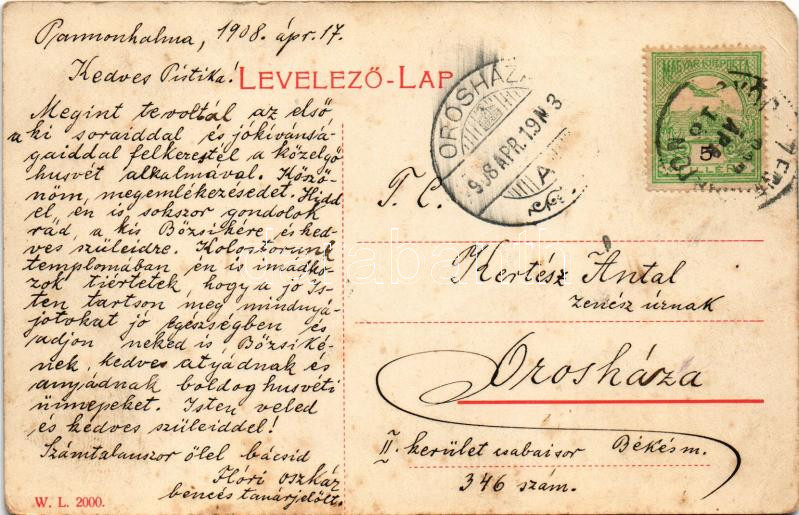 Pannonhalma, 1908. ápr. 17.
Kedves Pistika!
LEVELEZŐ-LAP
Megint te voltál az első,
a ki soraiddal és jókívánsá-
gaiddal felkerestél a közelgő
husvét alkalmával. Köszö-
nöm, megemlékezésedet. Hidd
el, én is sokszor gondolok
rád, a kis Bözsikére és ked-
ves szüleidre. Kolostorunk
templomában én is imádko-
zok tiértetek, hogy a jó Is-
ten tartson meg mindnyá-
jotokat jó egészségben és
adjon neked is, Bözsiké-
nek, kedves atyádnak és
anyjádnak boldog husvéti
ünnepeket. Isten veled
és kedves szüleiddel!
Számtalanszor ölel bácsid
Flóri Oszkár
bencés tanárjelölt.
W. L. 2000.
OROSHÁZA
908 ÁPR. 19. N 3
A
MAGYAR KIR. POSTA
5
FILLÉR
T. C.
Kertész Antal
zenész úrnak
Orosháza
II. kerület csabaisor Békés m.
346 szám.